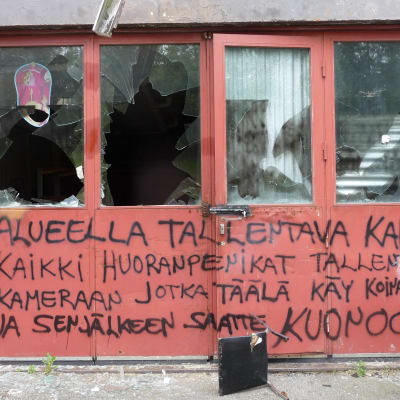 ALUEELLA TALLENTAVA KA
KAIKKI HUORANPENIKAT TALLEN
KAMERAAN JOTKA TÄÄLÄ KÄY KOIMA
JA SENJÄLKEEN SAATTE KUONOO